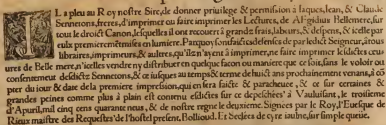 IL a pleu au Roy nostre Sire, de donner priuilege & permission a Iaques, Iean, & Claude
Sennetons, freres, d'imprimer ou faire imprimer les Lectures, de AEgidius Bellemere, sur
tout le droict Canon, lesquelles il ont recouuers à grande frais, labeurs, & despens, & icelle par
eulx premieremēt mises en lumiere. Parquoy sont faictes defences de par ledict Seigneur, à tous
libraires, imprimeurs, & aultres, qu'ilz n'ayent à imprimer, ne faire imprimer lesdictes lectures
ures de Belle mere, n'icelles vendre ny distribuer en quelque facon ou maniere que ce soit, sans le voloir ou
consentement desdictz Sennetons, & ce iusques au temps & terme de huict ans prochainement venans, à cō
pter du iour & date de la premiere impression, qui en sera faicte & paracheuee, & ce sur certaines &
grandes peines comme plus à plain est contenu esdictes sur ce depeschées à Vauluisant, le troisiesme
d'Apuril, mil cinq cens quarante neuf, & de nostre regne le deuxieme. Signées par le Roy, l'Euesque de
Rieux maistre des Requestes de l'hostel present, Bolliоud. Et Seelées de cyre iaulne, sur simple queüe.